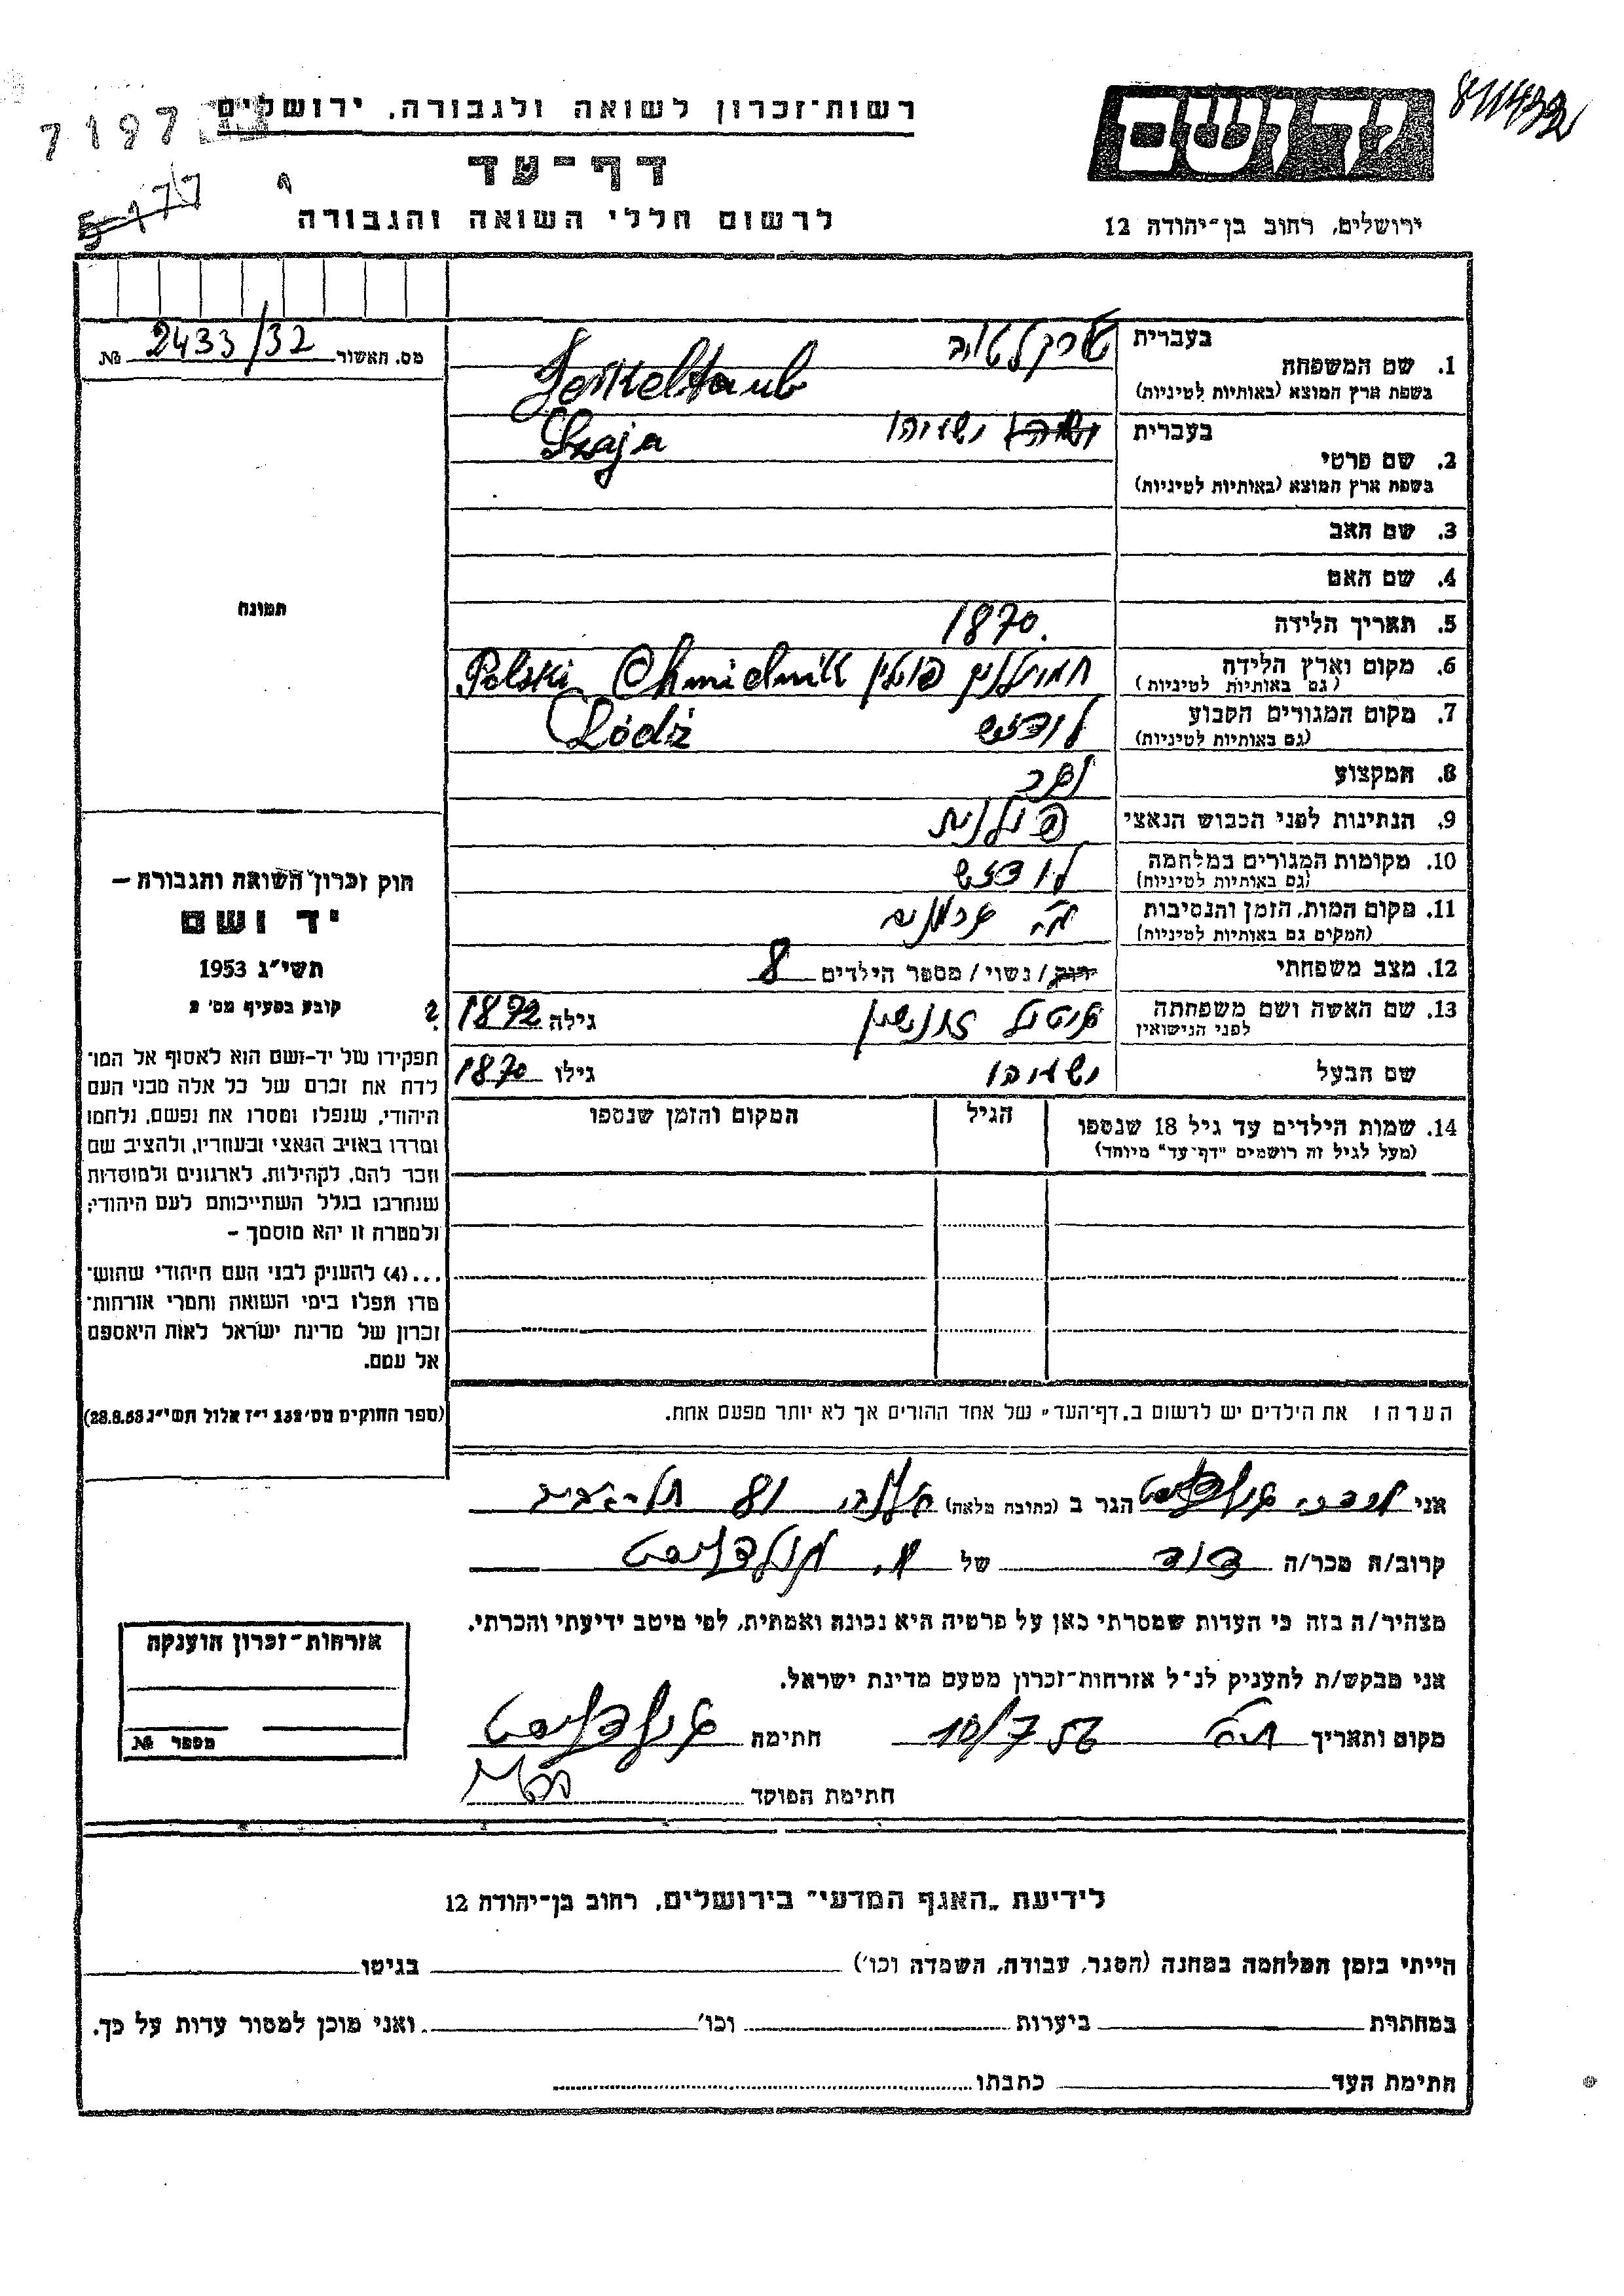 רשות־זכרון לשואה ולגבורה, ירושלים
7197
5177
811432
דף־עד
יד ושם
לרשום חללי השואה והגבורה
ירושלים, רחוב בן־יהודה 12
מס. האשור 2433/32 №
בעברית
1. שם המשפחה
בשפת ארץ המוצא (באותיות לטיניות)
בעברית ישעיהו
2. שם פרטי Szaja
בשפת ארץ המוצא (באותיות לטיניות)
3. שם האב
4. שם האם
תמונה
5. תאריך הלידה 1870.
6. מקום וארץ הלידה פולין Chmielnik Polski
(גם באותיות לטיניות)
7. מקום המגורים הקבוע לודזש Łódż
(גם באותיות לטיניות)
8. המקצוע
9. הנתינות לפני הכבוש הנאצי פולנית
10. מקומות המגורים במלחמה לודזש
(גם באותיות לטיניות)
11. מקום המות, הזמן והנסיבות
(המקום גם באותיות לטיניות)
12. מצב משפחתי רווק/ נשוי/ מספר הילדים 8
13. שם האשה ושם משפחתה גילה 1872 ?
לפני הנישואין
שם הבעל ישעיהו גילו 1870
14. שמות הילדים עד גיל 18 שנספו הגיל המקום והזמן שנספו
(מעל לגיל זה רושמים "דף־עד" מיוחד)
חוק זכרון השואה והגבורה –
יד ושם
תשי"ג 1953
קובע בסעיף מס' 2
תפקידו של יד־ושם הוא לאסוף אל המו־
לדת את זכרם של כל אלה מבני העם
היהודי, שנפלו ומסרו את נפשם, נלחמו
ומרדו באויב הנאצי ובעוזריו, ולהציב שם
וזכר להם, לקהילות, לארגונים ולמוסדות
שנחרבו בגלל השתייכותם לעם היהודי;
ולמטרה זו יהא מוסמך –
...(4) להעניק לבני העם היהודי שהוש־
מדו ונפלו בימי השואה והמרי אזרחות־
זכרון של מדינת ישראל לאות היאספם
אל עמם.
(ספר החוקים מס' 132 י"ז אלול תשי"ג 28.8.53)
הערה: את הילדים יש לרשום ב„דף־העד" של אחד ההורים אך לא יותר מפעם אחת.
אני הגר ב (כתובת מלאה) 81 תל־אביב
קרוב/ה מכר/ה דוד של
מצהיר/ה בזה כי העדות שמסרתי כאן על פרטיה היא נכונה ואמתית, לפי מיטב ידיעתי והכרתי.
אני מבקש/ת להעניק לנ"ל אזרחות־זכרון מטעם מדינת ישראל.
מקום ותאריך 10/7 56 חתימה
חתימת הפוקד
אזרחות־זכרון הוענקה
מספר №
לידיעת „האגף המדעי" בירושלים, רחוב בן־יהודה 12
הייתי בזמן המלחמה במחנה (הסגר, עבודה, השמדה וכו') בגיטו
במחתרת ביערות וכו' ואני מוכן למסור עדות על כך.
חתימת העד כתבתו